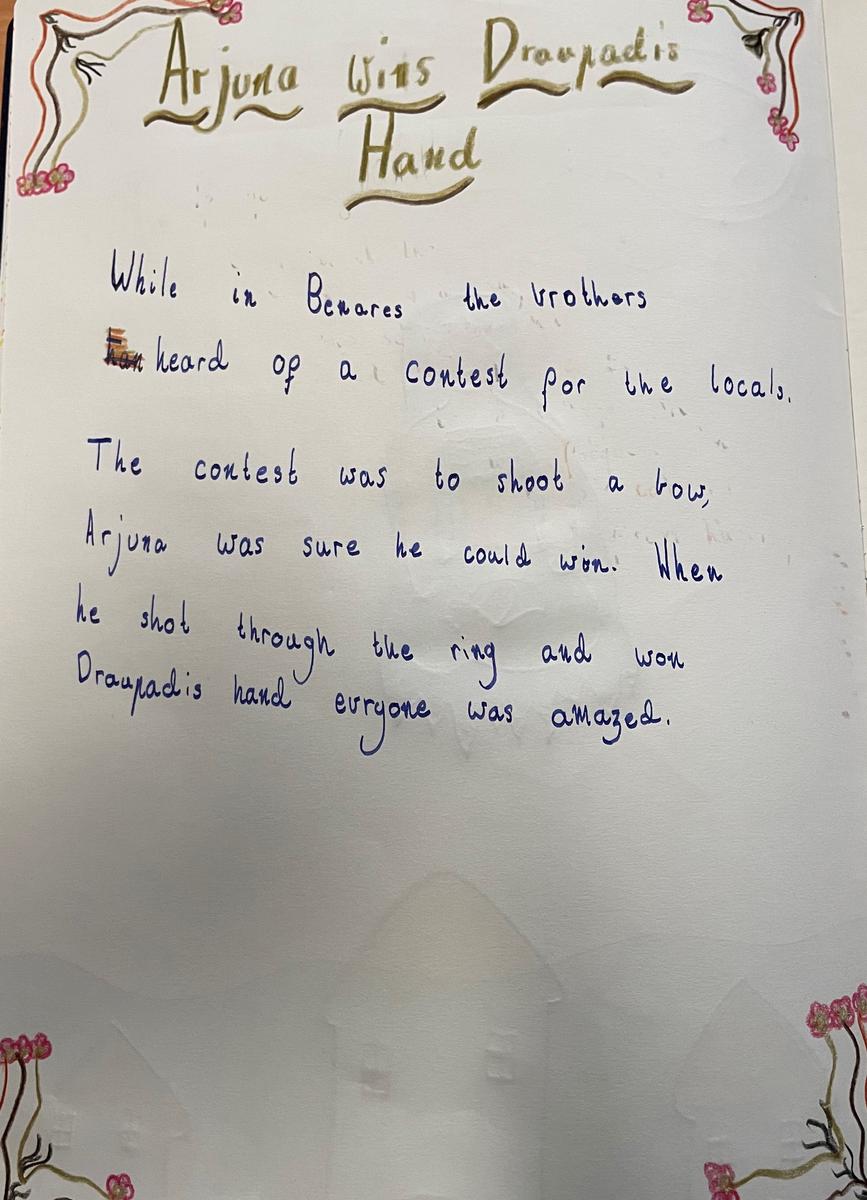 Arjuna wins Draupadis
Hand
While in Benares the brothers
heard of a contest for the locals.
The contest was to shoot a bow,
Arjuna was sure he could win. When
he shot through the ring and won
Draupadis hand evryone was amazed.